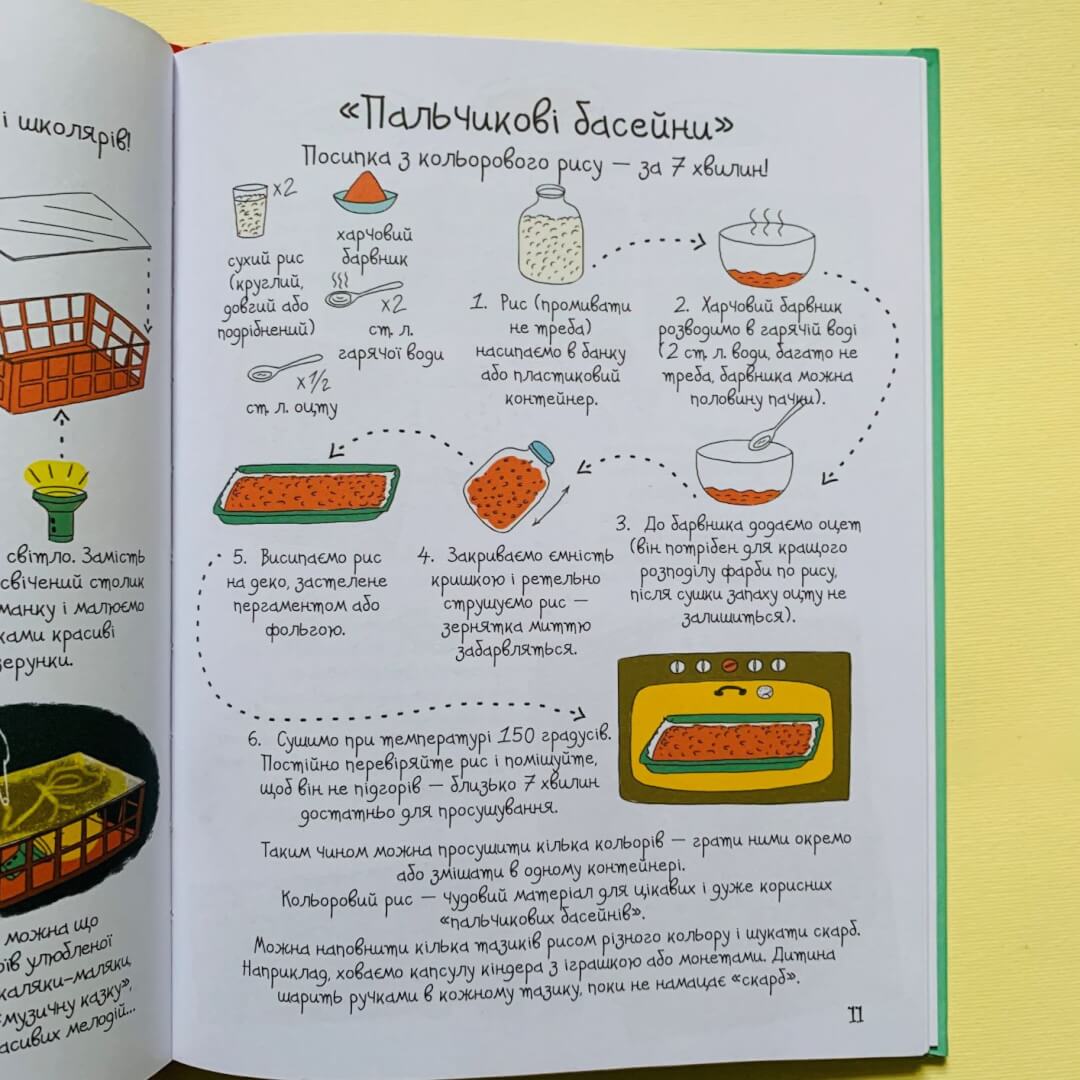 і школярів!
світло. Замість
свічений столик
манку і малюємо
ками красиві
зерунки.
можна що
улюбленої
каляки-маляки,
«музичну казку»,
асивих мелодій...
«Пальчикові басейни»
Посипка з кольорового рису — за 7 хвилин!
x2
сухий рис
(круглий,
довгий або
подрібнений)
харчовий
барвник
x2
ст. л.
гарячої води
x1/2
ст. л. оцту
1. Рис (промивати
не треба)
насипаємо в банку
або пластиковий
контейнер.
2. Харчовий барвник
розводимо в гарячій воді
(2 ст. л. води, багато не
треба, барвника можна
половину пачки).
3. До барвника додаємо оцет
(він потрібен для кращого
розподілу фарби по рису,
після сушки запаху оцту не
залишиться).
4. Закриваємо ємність
кришкою і ретельно
струшуємо рис —
зернятка миттю
забарвляться.
5. Висипаємо рис
на деко, застелене
пергаментом або
фольгою.
6. Сушимо при температурі 150 градусів.
Постійно перевіряйте рис і помішуйте,
щоб він не підгорів — близько 7 хвилин
достатньо для просушування.
Таким чином можна просушити кілька кольорів — грати ними окремо
або змішати в одному контейнері.
Кольоровий рис — чудовий матеріал для цікавих і дуже корисних
«пальчикових басейнів».
Можна наповнити кілька тазиків рисом різного кольору і шукати скарб.
Наприклад, ховаємо капсулу кіндера з іграшкою або монетами. Дитина
шарить ручками в кожному тазику, поки не намацає «скарб».
11